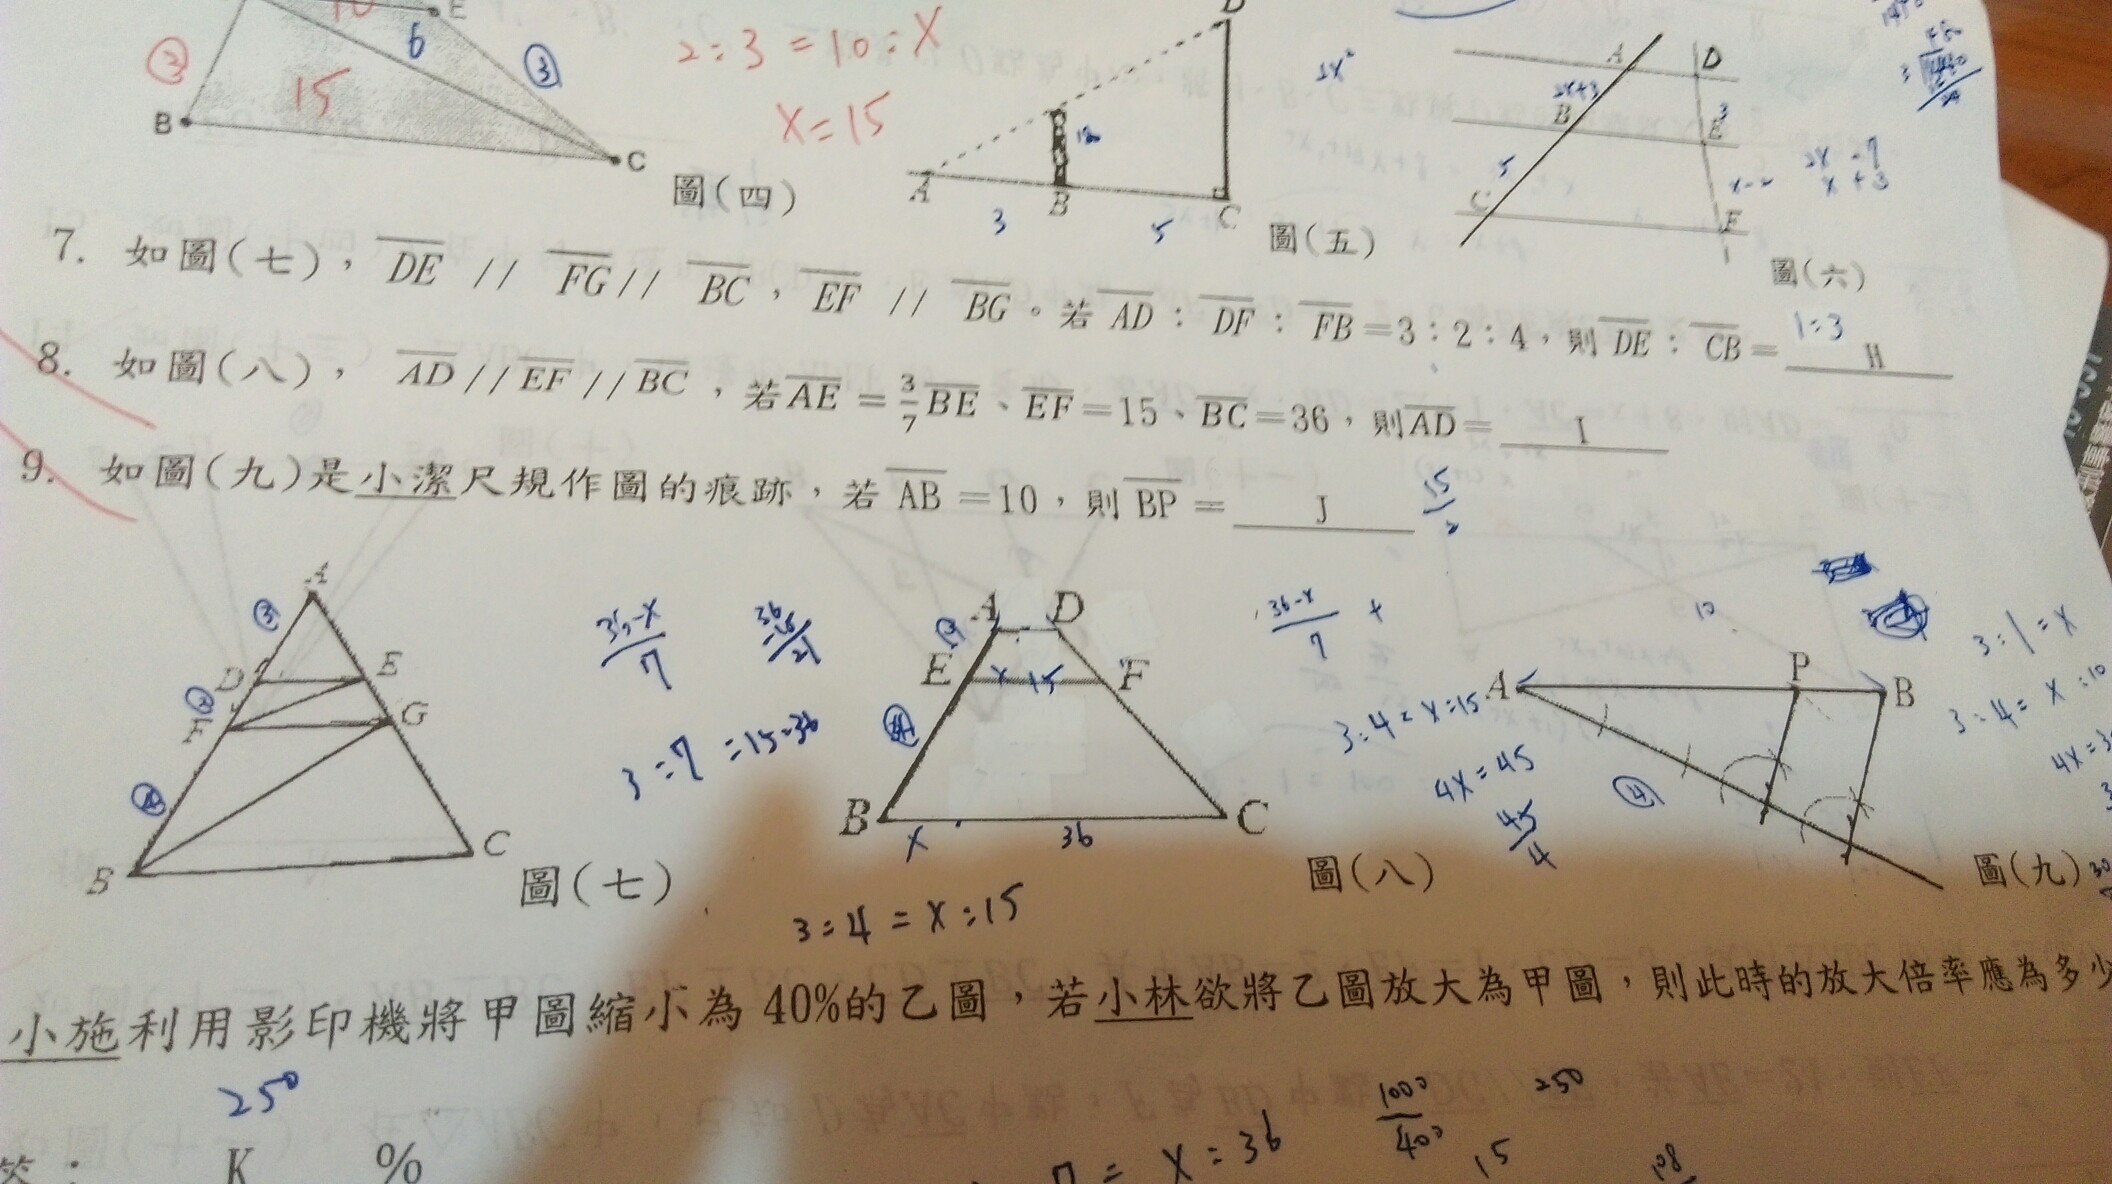 10
E
②
6
③
15
B
C
圖(四)
2:3=10:x
x=15
D
18
A
B
C
3
5
圖(五)
2x²
A
D
2x+3
B
3
E
5
x-2
C
F
圖(六)
2x-7
x+3
7. 如圖(七), DE // FG // BC, EF // BG。若 AD:DF:FB=3:2:4, 則 DE:CB= 1:3 H
8. 如圖(八), AD//EF//BC, 若 AE=3/7BE、EF=15、BC=36, 則AD= I
9. 如圖(九)是小潔尺規作圖的痕跡, 若 AB=10, 則 BP= J 15/2
A
③
D
E
②
F
G
④
B
C
圖(七)
36-x/7
36
-15
21
3:7=15:36
A
D
E
x 15
F
B
C
x
36
圖(八)
3:4=x:15
36-x/7 +
3:4=x:15
4x=45
45/4
10
A
P
B
④
圖(九)
3:1=x
3:4=x:10
小施利用影印機將甲圖縮小為 40%的乙圖, 若小林欲將乙圖放大為甲圖, 則此時的放大倍率應為多少
250
答: K %
7=x:36
1000/400
250
15
108